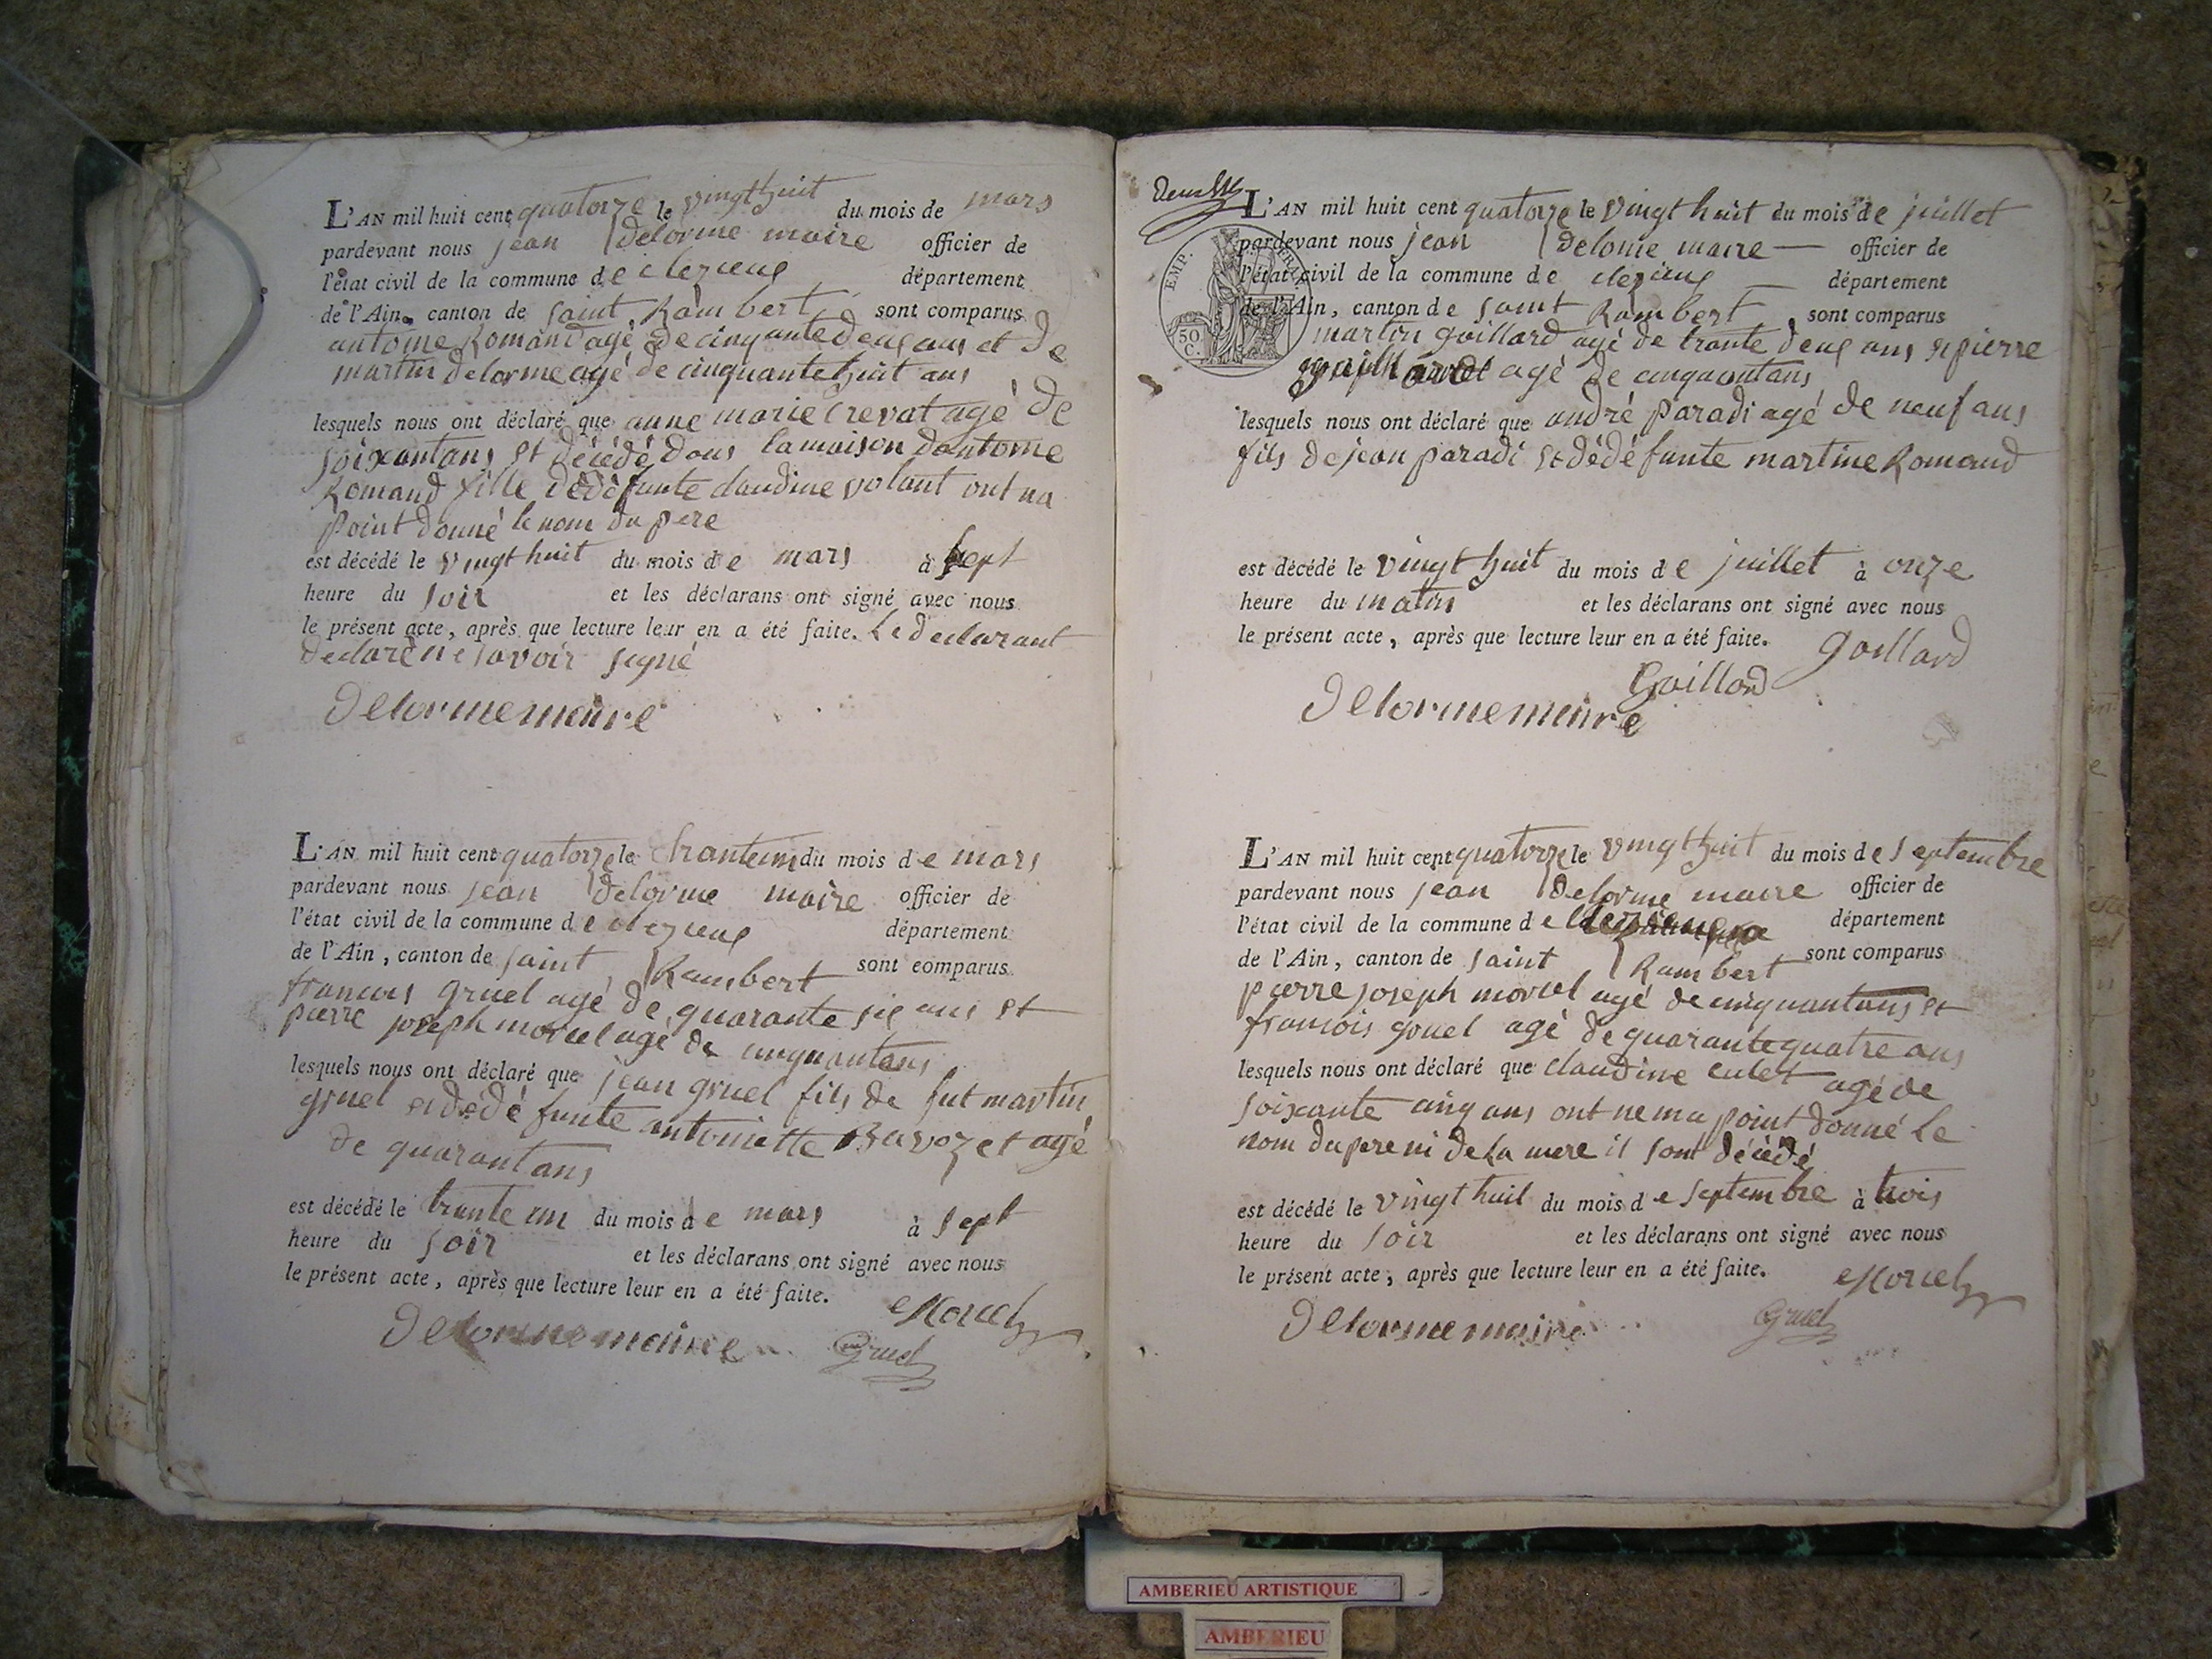 L'AN mil huit cent quatorze le vingt huit du mois de mars
pardevant nous jean delorme maire officier de
l'état civil de la commune de clezieux département
de l'Ain, canton de saint Rambert sont comparus
antoine Romand agé de cinquante deux ans et de
martin delorme agé de cinquante huit ans
lesquels nous ont déclaré que anne marie Crevat agé de
soixantans et décédé dans la maison dantoine
Romand fille dédéfunte claudine volant ont na
point donné le nom du pere
est décédé le vingt huit du mois de mars à sept
heure du soir et les déclarans ont signé avec nous
le présent acte, après que lecture leur en a été faite. Le declarant
declaré ne savoir signé
Delorme meire
L'AN mil huit cent quatorze le trante un du mois de mars
pardevant nous jean delorme maire officier de
l'état civil de la commune de clezieux département
de l'Ain, canton de saint Rambert sont comparus
francois gruel agé de quarante six ans et
pierre joseph morcel agé de cinquantans
lesquels nous ont déclaré que jean gruel fils de fut martin
gruel et dédé funte antoinette Bavozet agé
de quarantans
est décédé le trante un du mois de mars à sept
heure du soir et les déclarans ont signé avec nous
le présent acte, après que lecture leur en a été faite. Morcel
Delorme meire Gruel
L'AN mil huit cent quatorze le vingt huit du mois de juillet
EMP. FRAN.
50 C.
pardevant nous jean delorme maire officier de
l'état civil de la commune de clezieux département
de l'Ain, canton de saint Rambert sont comparus
martin goillard agé de trante deux ans et pierre
agé de cinquantans
lesquels nous ont déclaré que andré paradi agé de neuf ans
fils de jean paradi et dédé funte martine Romand
est décédé le vingt huit du mois de juillet à onze
heure du matin et les déclarans ont signé avec nous
le présent acte, après que lecture leur en a été faite. goillard
Goillard
Delorme meire
L'AN mil huit cent quatorze le vingt huit du mois de septembre
pardevant nous jean delorme maire officier de
l'état civil de la commune de département
de l'Ain, canton de saint Rambert sont comparus
pierre joseph morcel agé de cinquantans et
francois gruel agé de quarante quatre ans
lesquels nous ont déclaré que claudine culet agé de
soixante cinq ans ont ne ma point donné le
nom du pere ni de la mere il sont décédé
est décédé le vingt huit du mois de septembre à trois
heure du soir et les déclarans ont signé avec nous
le présent acte, après que lecture leur en a été faite. Morcel
Delorme maire Gruel
AMBERIEU ARTISTIQUE
AMBERIEU